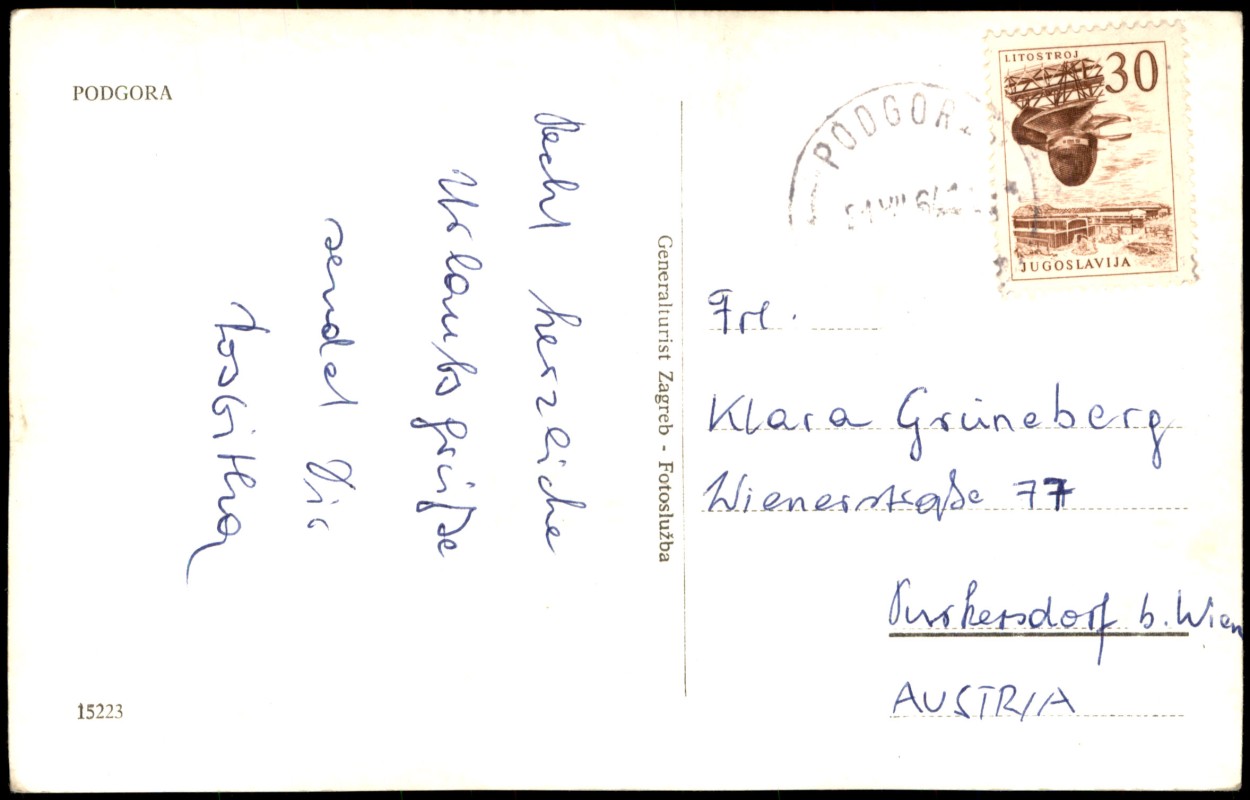 PODGORA
Recht herzliche
Urlaubsgrüße
sendet Dir
15223
Generalturist Zagreb - Fotoslužba
PODGORA
LITOSTROJ
30
JUGOSLAVIJA
Frl.
Klara Grüneberg
Wienerstraße 77
Purkersdorf b. Wien
AUSTRIA